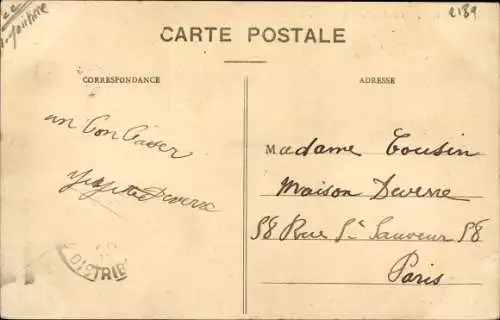 2189
CARTE POSTALE
CORRESPONDANCE
ADRESSE
un bon baiser
Deverre
DISTRIB
Madame Cousin
Maison Deverre
58 Rue St Sauveur 58
Paris